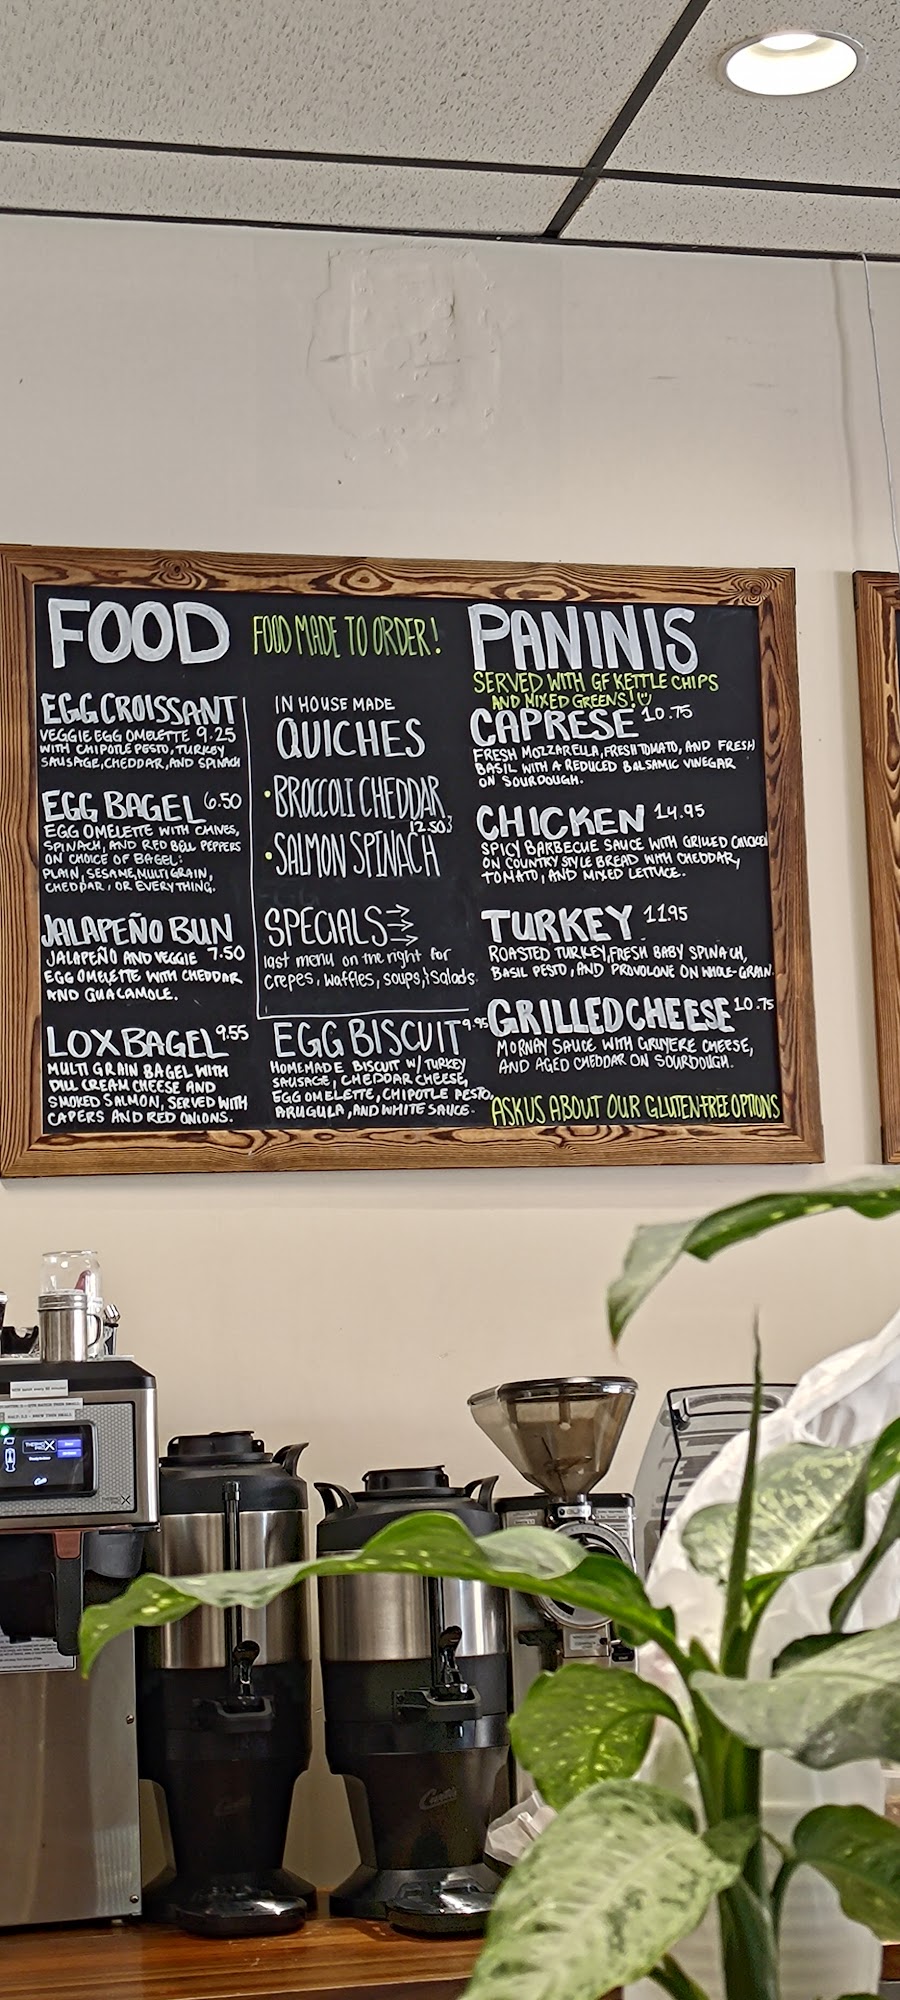 FOOD
FOOD MADE TO ORDER!
EGG CROISSANT
VEGGIE EGG OMELETTE 9.25
WITH CHIPOTLE PESTO, TURKEY
SAUSAGE, CHEDDAR, AND SPINACH
EGG BAGEL 6.50
EGG OMELETTE WITH CHIVES,
SPINACH, AND RED BELL PEPPERS
ON CHOICE OF BAGEL:
PLAIN, SESAME, MULTIGRAIN,
CHEDDAR, OR EVERYTHING.
JALAPEÑO BUN
JALAPEÑO AND VEGGIE 7.50
EGG OMELETTE WITH CHEDDAR
AND GUACAMOLE.
LOX BAGEL 9.55
MULTI GRAIN BAGEL WITH
DILL CREAM CHEESE AND
SMOKED SALMON, SERVED WITH
CAPERS AND RED ONIONS.
IN HOUSE MADE
QUICHES
• BROCCOLI CHEDDAR
12.50
• SALMON SPINACH
SPECIALS
last menu on the right for
crepes, waffles, soups, & Salads.
EGG BISCUIT 9.95
HOMEMADE BISCUIT W/ TURKEY
SAUSAGE, CHEDDAR CHEESE,
EGG OMELETTE, CHIPOTLE PESTO,
ARUGULA, AND WHITE SAUCE.
PANINIS
SERVED WITH GF KETTLE CHIPS
AND MIXED GREENS!
CAPRESE 10.75
FRESH MOZZARELLA, FRESH TOMATO, AND FRESH
BASIL WITH A REDUCED BALSAMIC VINEGAR
ON SOURDOUGH.
CHICKEN 14.95
SPICY BARBECUE SAUCE WITH GRILLED CHICKEN
ON COUNTRY STYLE BREAD WITH CHEDDAR,
TOMATO, AND MIXED LETTUCE.
TURKEY 11.95
ROASTED TURKEY, FRESH BABY SPINACH,
BASIL PESTO, AND PROVOLONE ON WHOLE-GRAIN.
GRILLED CHEESE 10.75
MORNAY SAUCE WITH GRUYERE CHEESE,
AND AGED CHEDDAR ON SOURDOUGH.
ASK US ABOUT OUR GLUTEN-FREE OPTIONS
Curtis